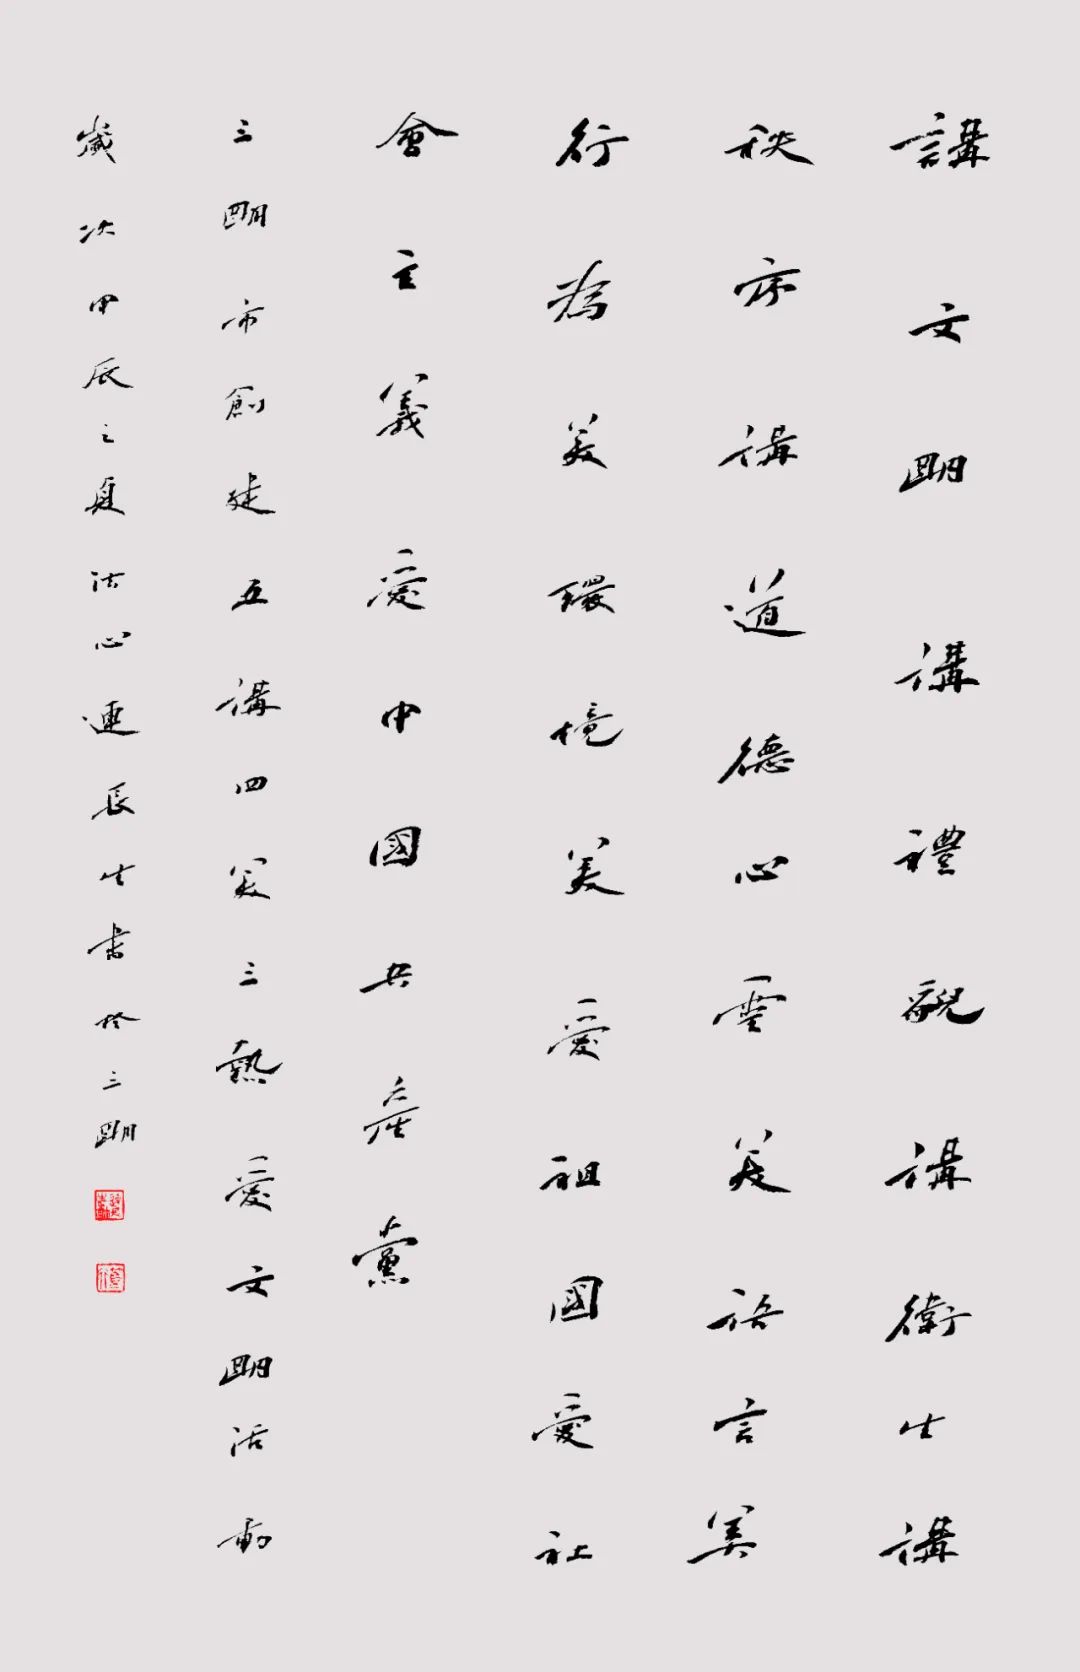 講文明講禮貌講衛生講
秩序講道德心靈美語言美
行為美環境美愛祖國愛社
會主義愛中國共產黨
三明市創建五講四美三熱愛文明活動
歲次甲辰之夏心連長生書於三明